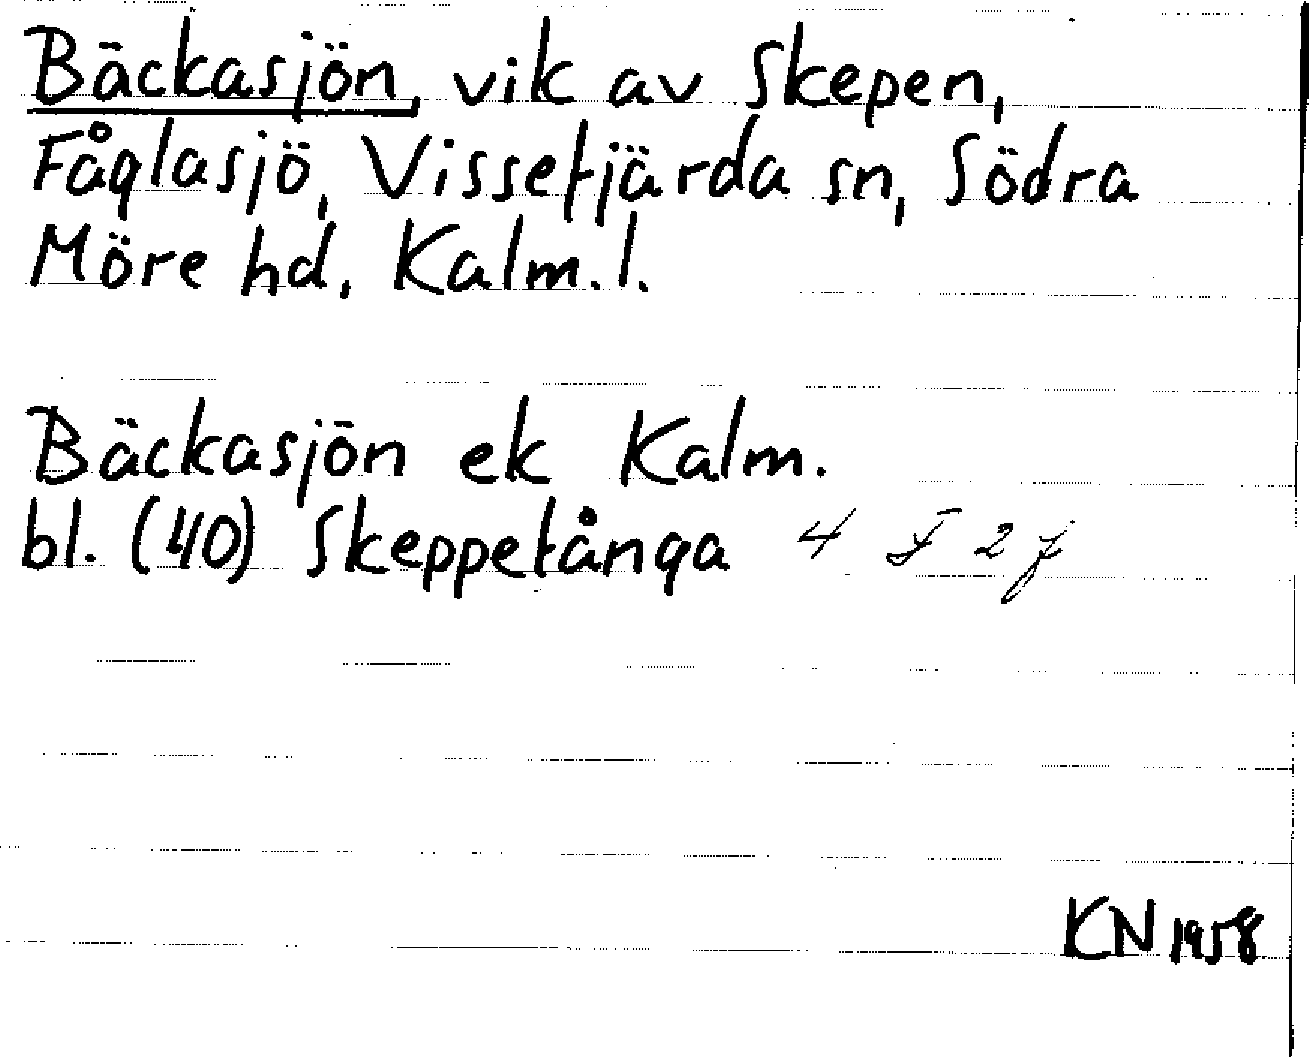 Bäckasjön, vik av Skepen,
Fåglasjö, Vissefjärda sn, Södra
Möre hd, Kalm. l.
Bäckasjön ek Kalm.
bl. (40) Skeppetånga 4 F 2 f
KN 1958